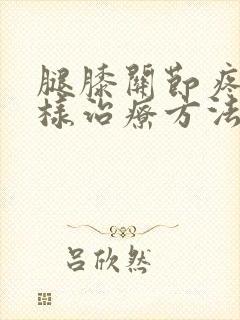 腿膝關節疼
樣治療方法
吕欣然